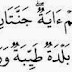 مْ ءَايَةٌۖ جَنَّتَانِ
بَلْدَةٌ طَيِّبَةٌ وَرَ